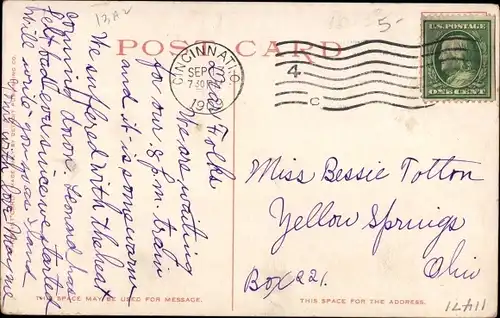 13A2
5-
POST CARD
CINCINNATI, O.
SEP
7 30 P
19
4
C
U.S. POSTAGE
ONE CENT
Dear Folks
We are waiting
for our 8 P.m. train
and it is so very warm
We suffered with the heat
coming down. Leonard has
felt bad ever since we started
Will write you soon
With love Mayme
Miss Bessie Totton
Yellow Springs
Ohio
Box 221.
THIS SPACE MAY BE USED FOR MESSAGE.
THIS SPACE IS FOR THE ADDRESS.
11471